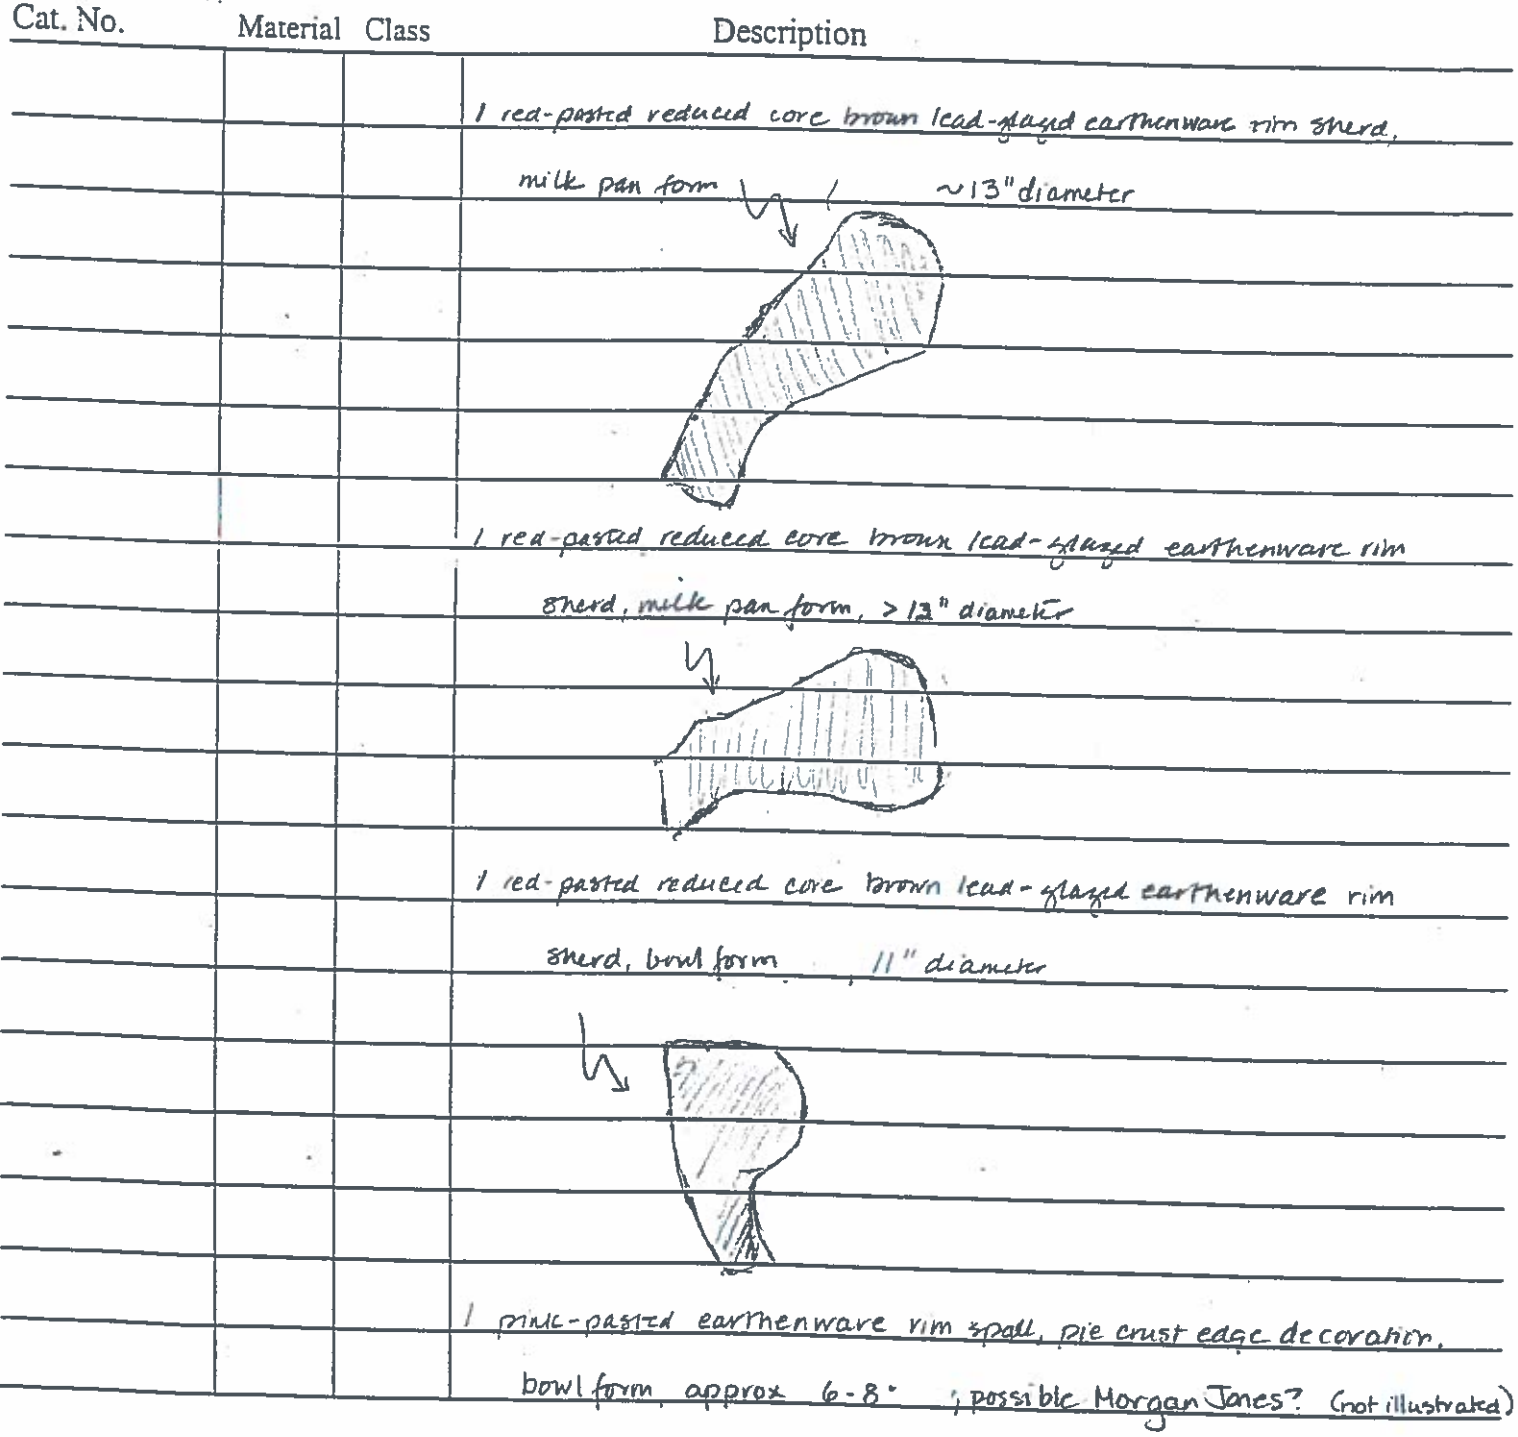 Cat. No. Material Class Description
1 red-pasted reduced core brown lead-glazed earthenware rim sherd,
milk pan form ~13" diameter
1 red-pasted reduced core brown lead-glazed earthenware rim
sherd, milk pan form, > 13" diameter
1 red-pasted reduced core brown lead-glazed earthenware rim
sherd, bowl form , 11" diameter
1 pink-pasted earthenware rim spall, pie crust edge decoration,
bowl form approx 6-8" ; possible Morgan Jones? (not illustrated)